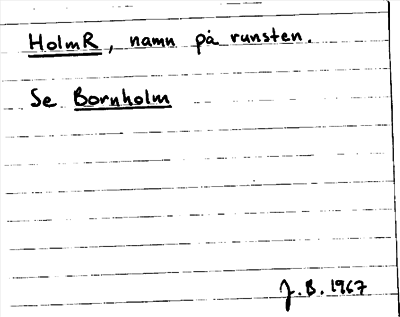 HolmR, namn på runsten.
Se Bornholm
J.B. 1967